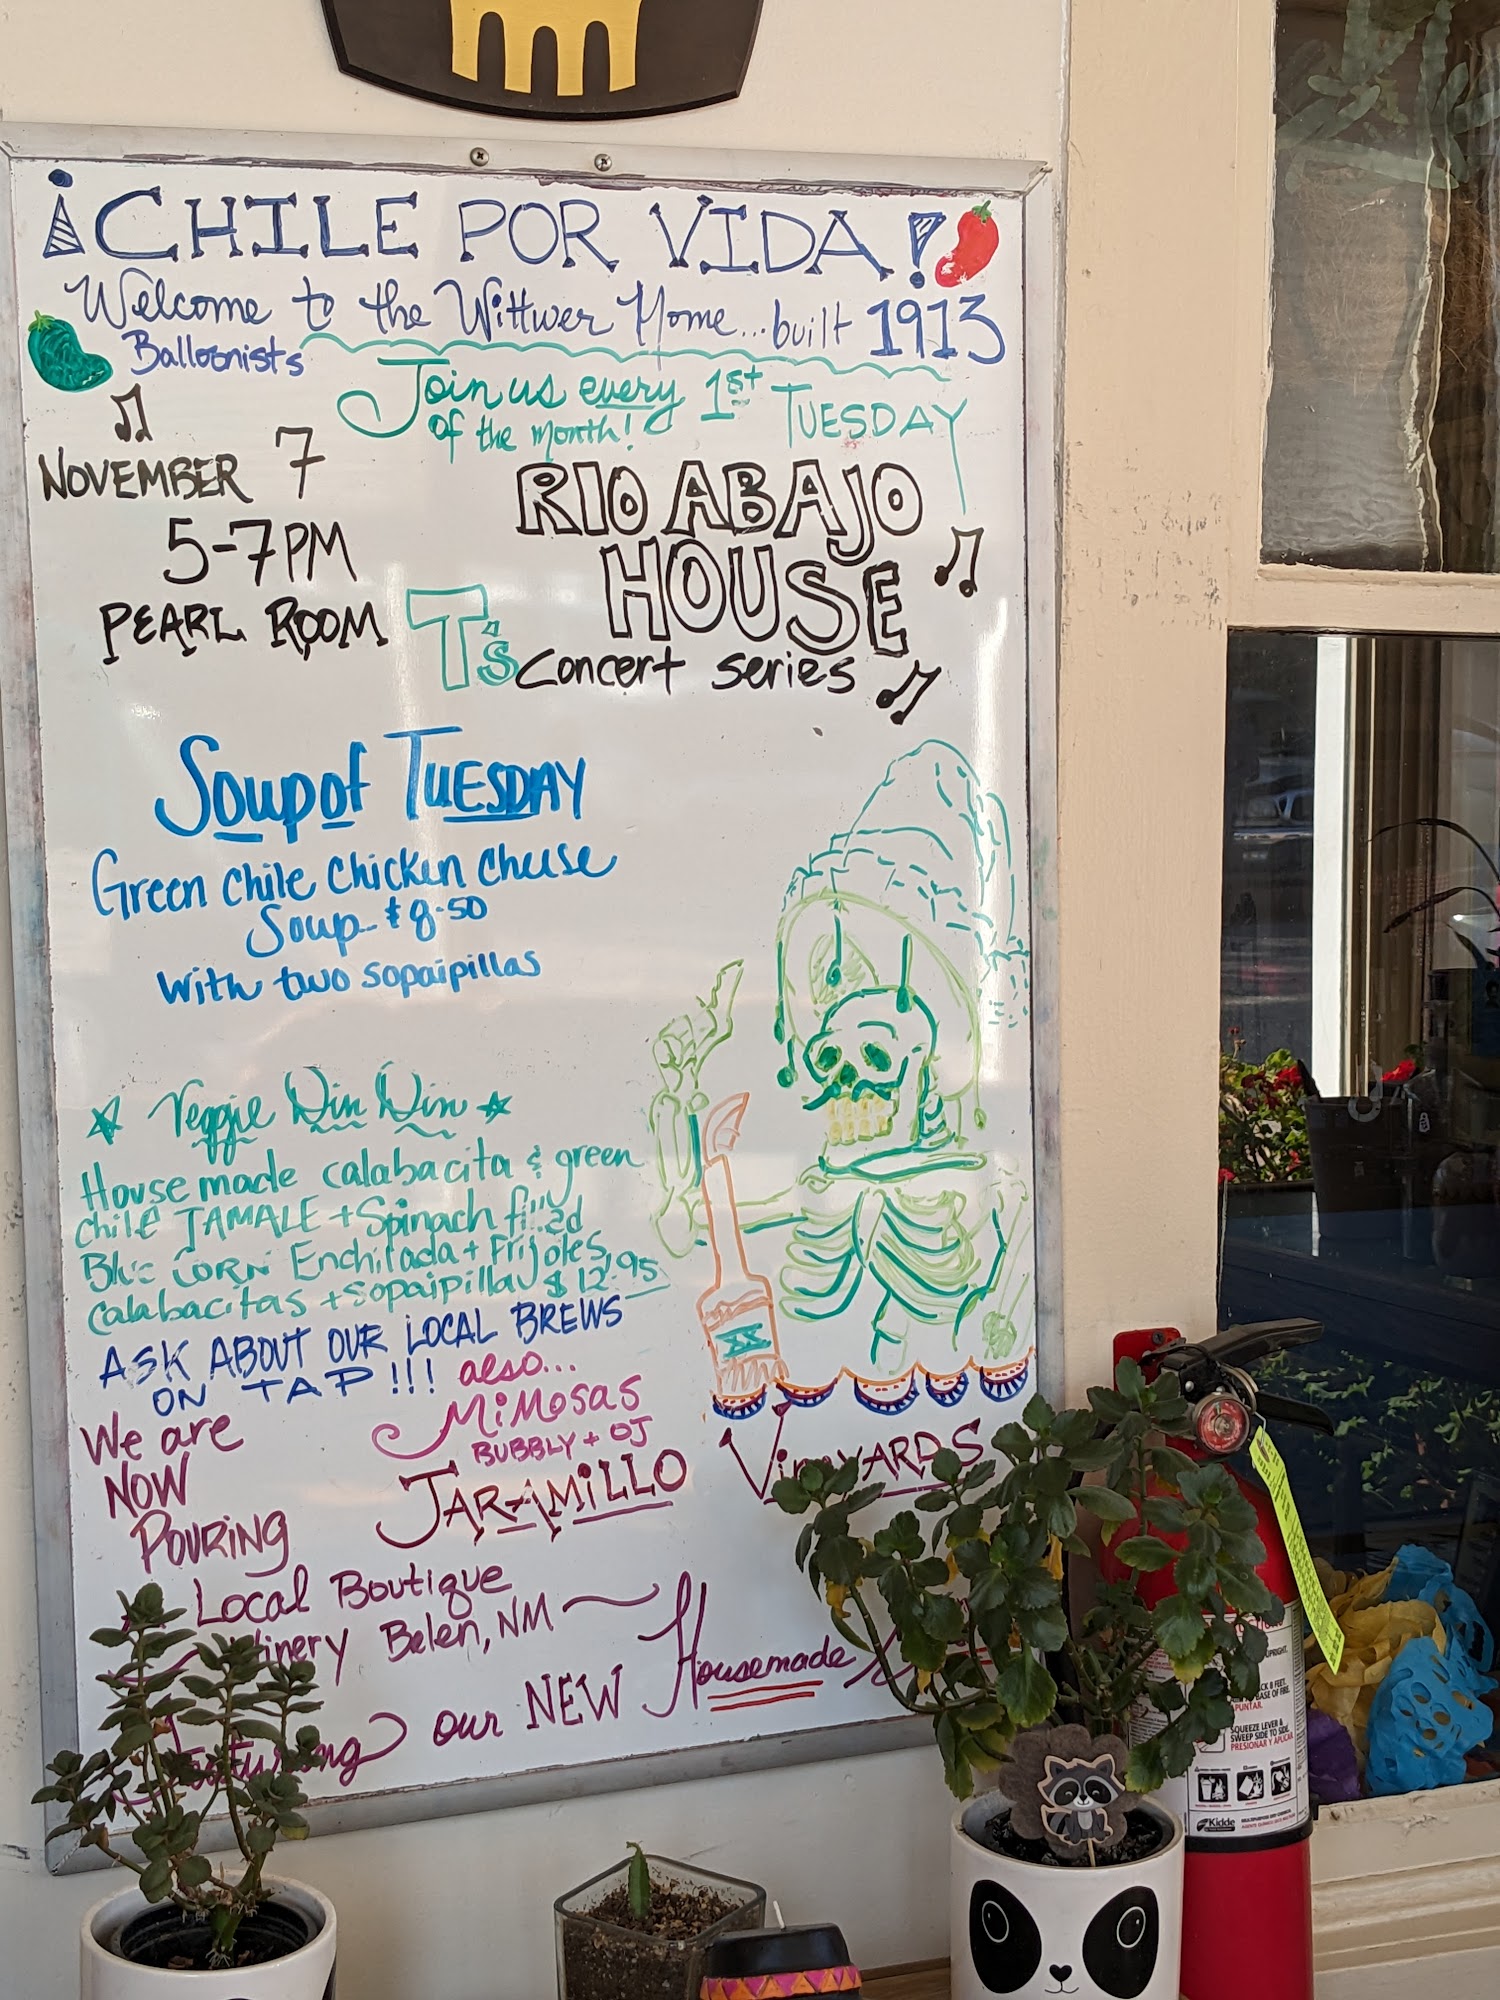 ¡CHILE POR VIDA!
Welcome to the Wittwer Home... built 1913
Balloonists
Join us every 1st TUESDAY
of the month!
NOVEMBER 7
5-7PM
PEARL ROOM
RIO ABAJO
HOUSE
T's Concert series
Soup of TUESDAY
Green chile chicken cheese
Soup.. $8.50
with two sopaipillas
Veggie Din Din
House made calabacita & green
chile TAMALE + Spinach filled
Blue CORN Enchilada + Frijoles,
calabacitas + sopaipilla $12.95
ASK ABOUT OUR LOCAL BREWS
ON TAP!!! also...
MiMOSAS
BUBBLY + OJ
We are
NOW
POURING
JARAMiLLO VinEYARDS
Local Boutique
Winery Belen, NM
Featuring our NEW Housemade
UPRIGHT.
PUNTAR.
SQUEEZE LEVER &
SWEEP SIDE TO SIDE.
PRESIONAR Y APLICAR
Kidde